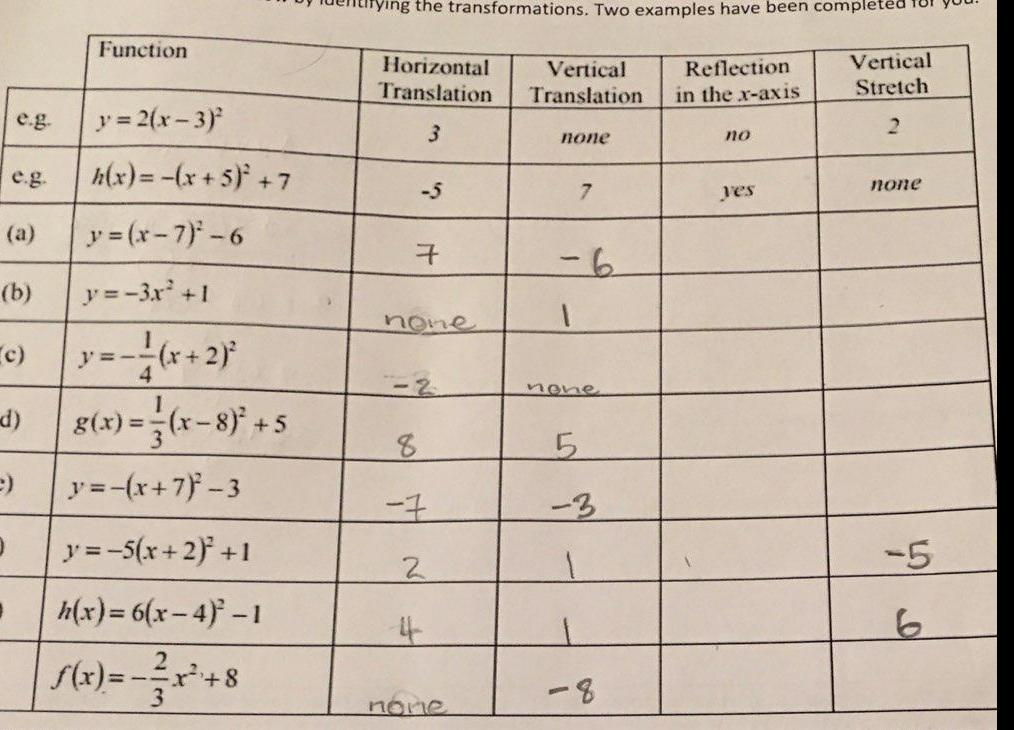 identifying the transformations. Two examples have been completed for you.
Function Horizontal Translation Vertical Translation Reflection in the x-axis Vertical Stretch
e.g. y = 2(x – 3)² 3 none no 2
e.g. h(x) = –(x + 5)² + 7 -5 7 yes none
(a) y = (x – 7)² – 6 7 -6
(b) y = –3x² + 1 none 1
(c) y = –1/4(x + 2)² -2 none
d) g(x) = 1/3(x – 8)² + 5 8 5
e) y = –(x + 7)² – 3 -7 -3
) y = –5(x + 2)² + 1 2 1 -5
) h(x) = 6(x – 4)² – 1 4 1 6
f(x) = –2/3x² + 8 none -8